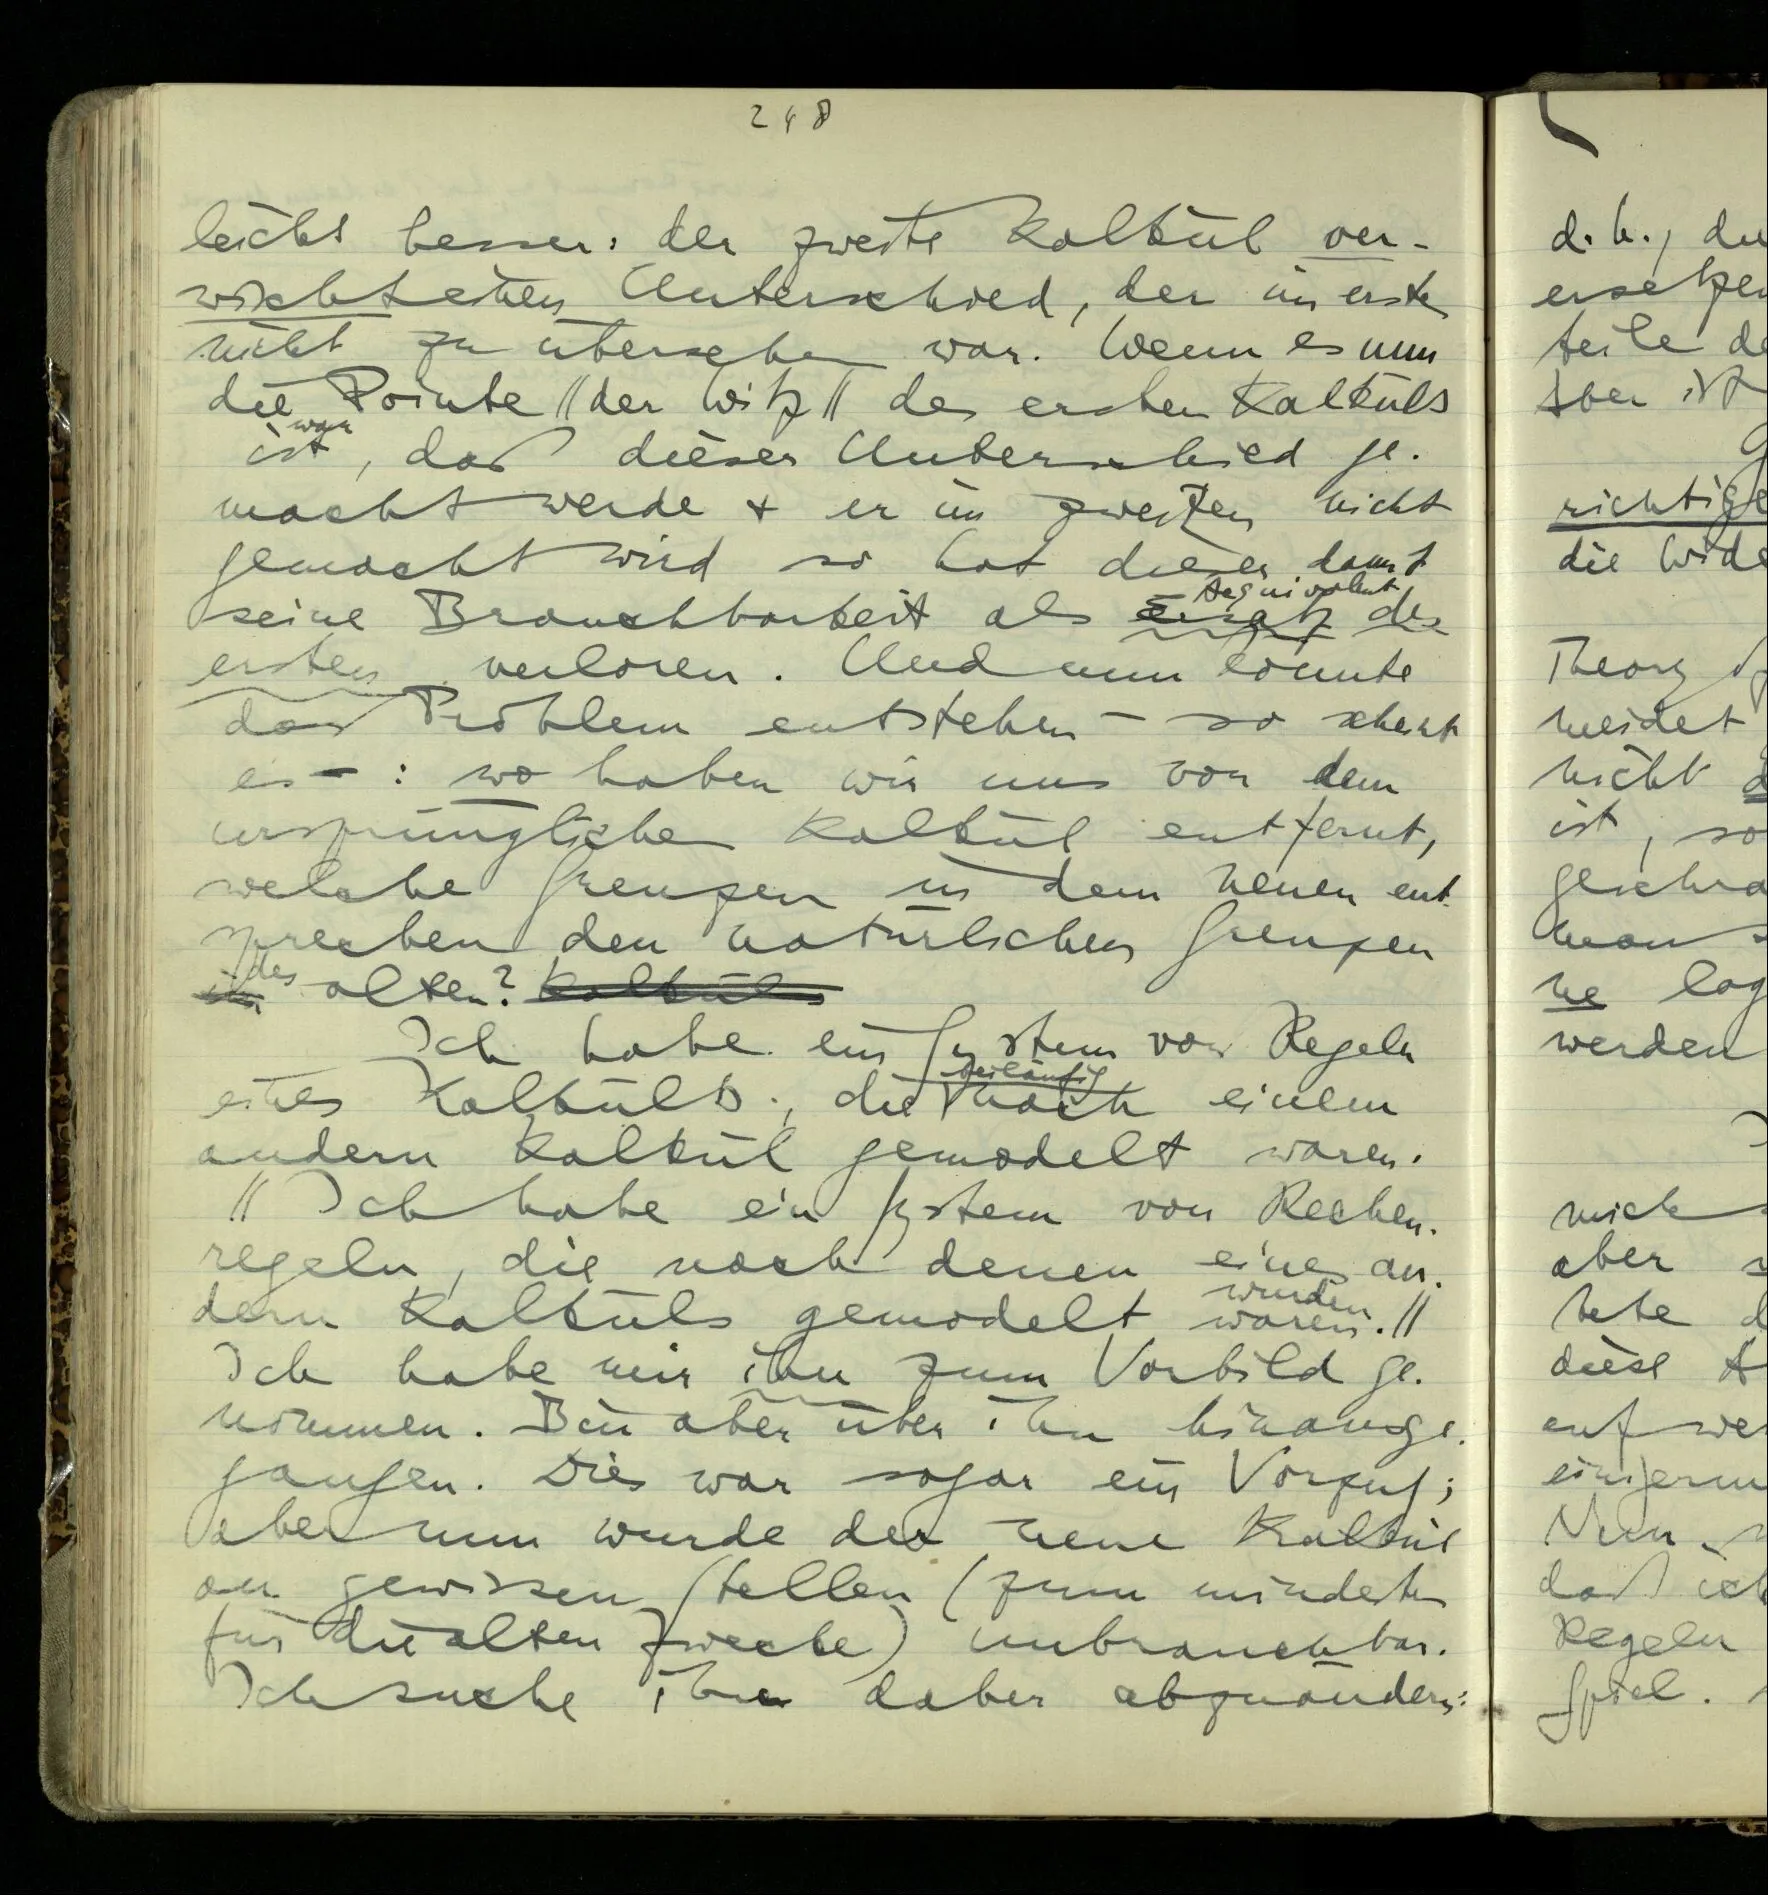 248
leicht besser: der zweite Kalkül ver-
wischt einen Unterschied, der im ersten
nicht zu übersehen war. Wenn es nun
die Pointe // der Witz // des ersten Kalküls
war
ist, daß dieser Unterschied ge-
macht werde & er im zweiten nicht
gemacht wird so hat dieser damit
Aequivalent
seine Brauchbarkeit als Ersatz des
ersten verloren. Und nun könnte
das Problem entstehen – so scheint
es – : wo haben wir uns von dem
ursprünglichen Kalkül entfernt,
welche Grenzen in dem neuen ent-
sprechen den natürlichen Grenzen
des
im alten? Kalküls
Ich habe ein System von Regeln
beiläufig
eines Kalküls, die nach einem
andern Kalkül gemodelt waren.
// Ich habe ein System von Rechen-
regeln, die nach denen eines an-
wurden
dern Kalküls gemodelt waren. //
Ich habe mir ihn zum Vorbild ge-
nommen. Bin aber über ihn hinausge-
gangen. Dies war sogar ein Vorzug;
aber nun wurde der neue Kalkül
an gewissen Stellen (zum mindesten
für die alten Zwecke) unbrauchbar.
Ich suche ihn daher abzuändern:
d.h., die
ersetzen
teile de
Aber ist
richtige
die Wide
Theory of
meidet
nicht d
ist, so
geschra
man s
ne log
werden
mich
aber
hebe d
diese A
auf we
einzerm
Nun
daß ich
Regeln
Spiel.